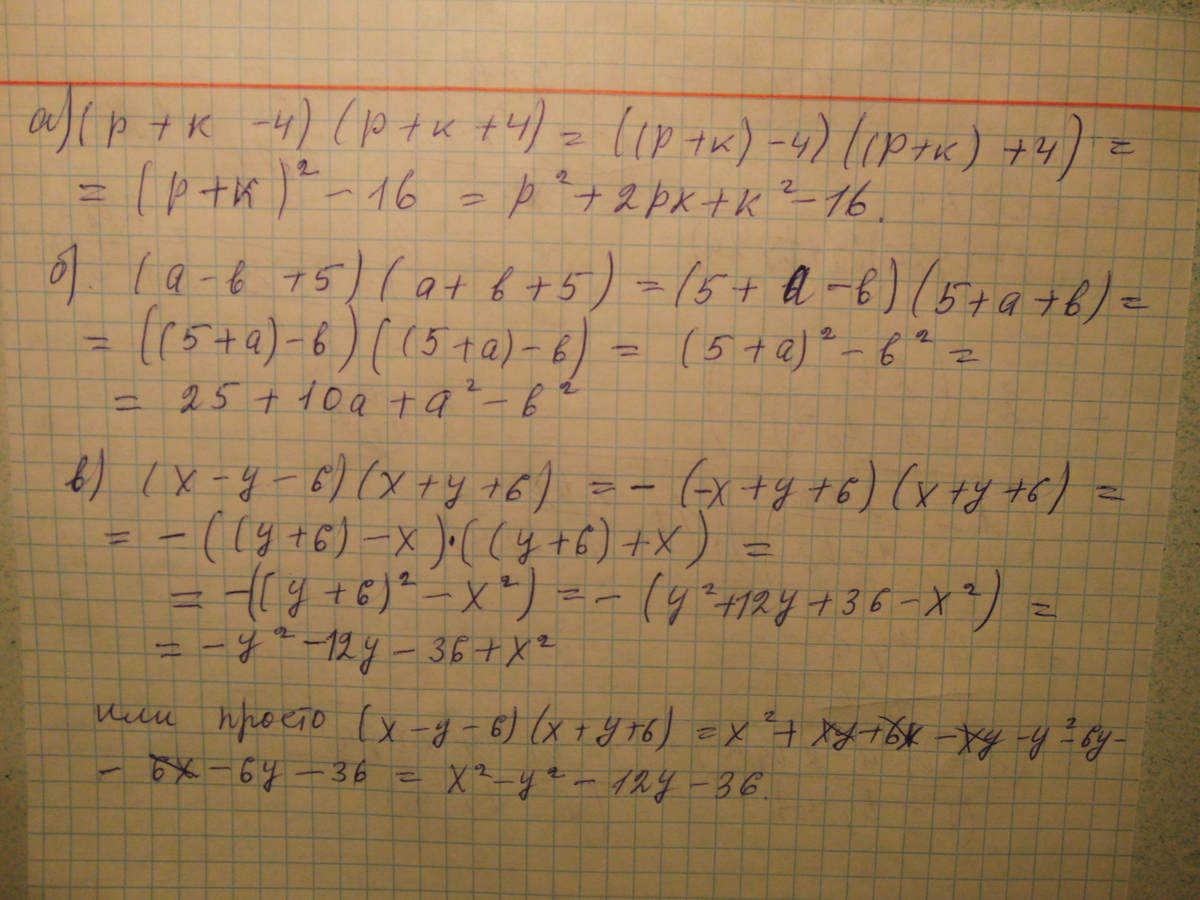 а) (p + к - 4) (p + к + 4) = ((p + к) - 4) ((p + к) + 4) =
= (p + к)² - 16 = p² + 2pк + к² - 16.
б). (a - в + 5) (a + в + 5) = (5 + a - в) (5 + a + в) =
= ((5 + a) - в) ((5 + a) - в) = (5 + a)² - в² =
= 25 + 10a + a² - в²
в) (x - y - 6) (x + y + 6) = - (-x + y + 6) (x + y + 6) =
= - ((y + 6) - x) · ((y + 6) + x) =
= - ((y + 6)² - x²) = - (y² + 12y + 36 - x²) =
= - y² - 12y - 36 + x²
или просто (x - y - 6) (x + y + 6) = x² + xy + 6x - xy - y² - 6y -
- 6x - 6y - 36 = x² - y² - 12y - 36.